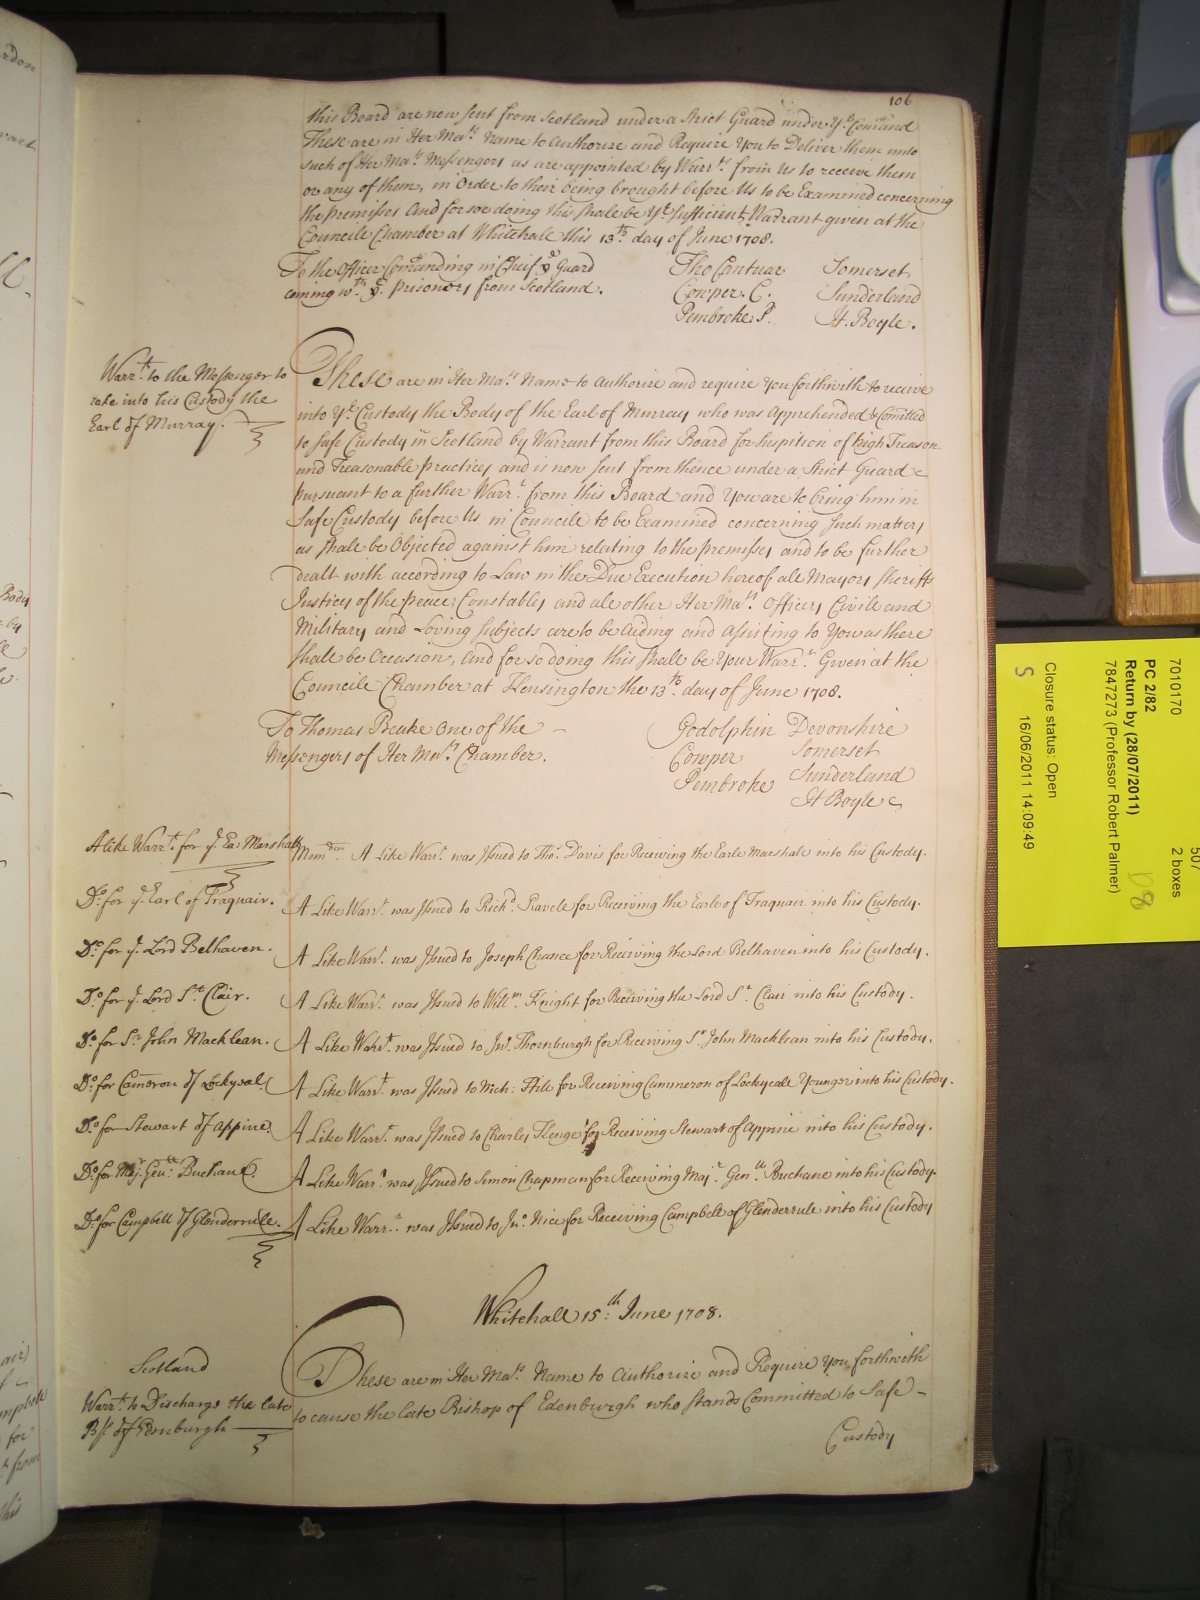 106
this Board are now sent from Scotland under a Strict Guard under yr. Comand
These are in Her Mats. Name to Authorize and Require You to Deliver them unto
such of Her Mats. Messengers as are appointed by Warrts. from Us to receive them
or any of them, in Order to their being brought before Us to be Examined concerning
the premisses And for soe doing this shall be Yr. sufficient Warrant given at the
Councile Chamber at Whitehall this 13th. day of June 1708.
To the Officer Comanding in Cheif ye Guard
coming wth. ye. prisoners from Scotland.
Tho Cantuar Somerset
Cowper. C. Sunderland
Pembroke. P. H. Boyle.
Warrt. to the Messenger to
take into his Custody the
Earl of Murray.
These are in Her Mats. Name to Authorize and require You forthwith to receive
into Yr. Custody the Body of the Earl of Murray who was Apprehended & Comitted
to safe Custody in Scotland by Warrant from this Board for Suspition of high Treason
and Treasonable practices and is now sent from thence under a Strict Guard
pursuant to a further Warrt. from this Board and You are to bring him in
Safe Custody before Us in Councile to be Examined concerning such matters
as shall be Objected against him relating to the premisses and to be further
dealt with according to Law in the Due Execution hereof all Mayors Sheriffs
Justices of the peace, Constables and all other Her Mats. Officers Civill and
Military and Loving Subjects are to be Aiding and Assisting to You as there
shall be Occasion, And for so doing this shall be Your Warrt. Given at the
Councile Chamber at Kensington the 13th. day of June 1708.
To Thomas Beake One of the
Messengers of Her Mats. Chamber.
Godolphin Devonshire
Cowper Somerset
Pembroke Sunderland
H Boyle
A like Warrt. for ye. Ea: Marshall
Memdm. A Like Warrt. was Issued to Tho: Davis for Receiving the Earle Marshall into his Custody.
Do. for ye. Earl of Traquair.
A Like Warrt. was Issued to Richd. Savele for Receiving the Earle of Traquair into his Custody.
Do. for ye. Lord Belhaven.
A Like Warrt. was Issued to Joseph Chance for Receiving the Lord Belhaven into his Custody.
Do. for ye. Lord St. Clair.
A Like Warrt. was Issued to Willm. Knight for Receiving the Lord St. Clair into his Custody.
Do. for Sr. John Macklean.
A Like Warrt. was Issued to Jno. Thornburgh for Receiving Sr. John Macklean into his Custody.
Do. for Cameron of Lockyeal
A Like Warrt. was Issued to Nich: Hile for Receiving Cammeron of Lockyeale Younger into his Custody.
Do. for Stewart of Appine
A Like Warrt. was Issued to Charles Kenge for Receiving Stewart of Appine into his Custody.
Do. for Majr. Genll. Buchane.
A Like Warrt. was Issued to Simon Chapman for Receiving Majr. Genll. Buchane into his Custody.
Do. for Campbell of Glenderule.
A Like Warrt. was Issued to Jno. Nice for Receiving Campbell of Glenderrule into his Custody
Whitehall 15th. June 1708.
Scotland
Warrt. to Discharge the late
Bp. of Edenburgh
These are in Her Mats. Name to Authorize and Require You forthwith
to cause the late Bishop of Edenburgh who stands Committed to Safe
Custody
7010170
PC 2/82
Return by (28/07/2011)
7847273 (Professor Robert Palmer)
Closure status: Open
S 16/06/2011 14:09:49
507
2 boxes